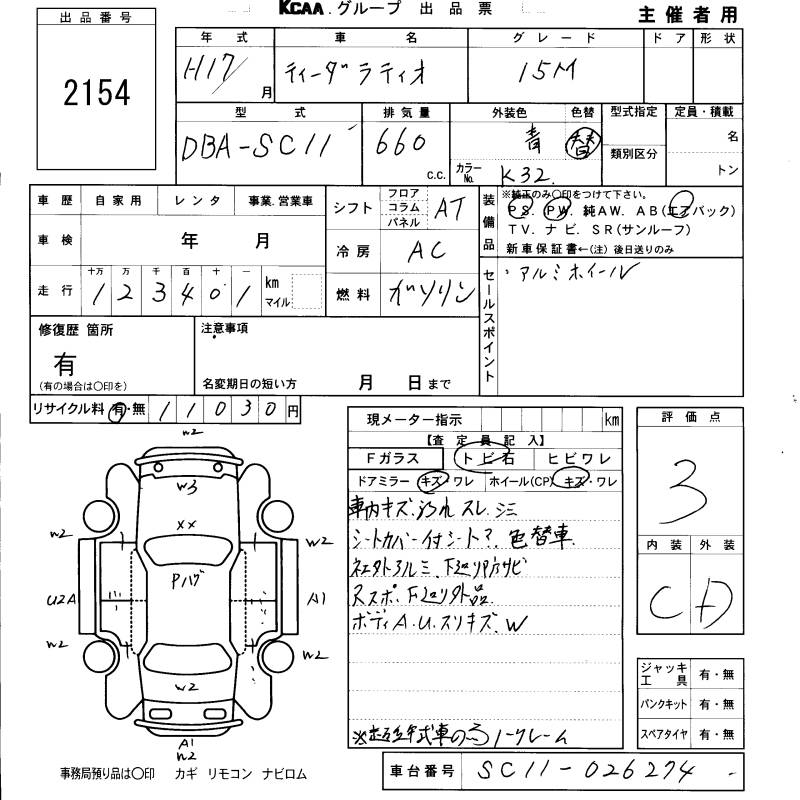 KCAA.グループ 出品票
主催者用
出品番号
2154
年式 車名 グレード ドア 形状
H17/ 月 ティーダラティオ 15M
型式 排気量 外装色 色替 型式指定 定員・積載
DBA-SC11 660 c.c. 青 替 名
カラーNo. K32 類別区分 トン
車歴 自家用 レンタ 事業.営業車
車検 年 月
走行 十万 万 千 百 十 一
1 2 3 4 0 1 km マイル
シフト フロア コラム パネル AT
冷房 AC
燃料 ガソリン
装備品
※純正のみ○印をつけて下さい。
PS. PW. 純AW. AB(エアバック)
TV. ナビ. SR(サンルーフ)
新車保証書←(注) 後日送りのみ
セールスポイント
・アルミホイール
修復歴 箇所
有
(有の場合は○印を)
注意事項
名変期日の短い方 月 日まで
リサイクル料 有・無 11030円
現メーター指示 km
【査定員記入】
Fガラス トビ石 ヒビワレ
ドアミラー キズ・ワレ ホイール(CP) キズ・ワレ
車内キズ.汚れ スレ.シミ
シートカバー付シート?. 色替車.
社外アルミ. 下廻り サビ
下廻り外品.
ボディA.U.スリキズ.W
年式車の為ノークレーム
評価点
3
内装 外装
C D
ジャッキ工具 有・無
パンクキット 有・無
スペアタイヤ 有・無
W2
W3
XX
W2 W2
Pハゲ
U2A A1
W2 W2
W2
A1
W2
事務局預り品は○印 カギ リモコン ナビロム
車台番号 SC11-026274